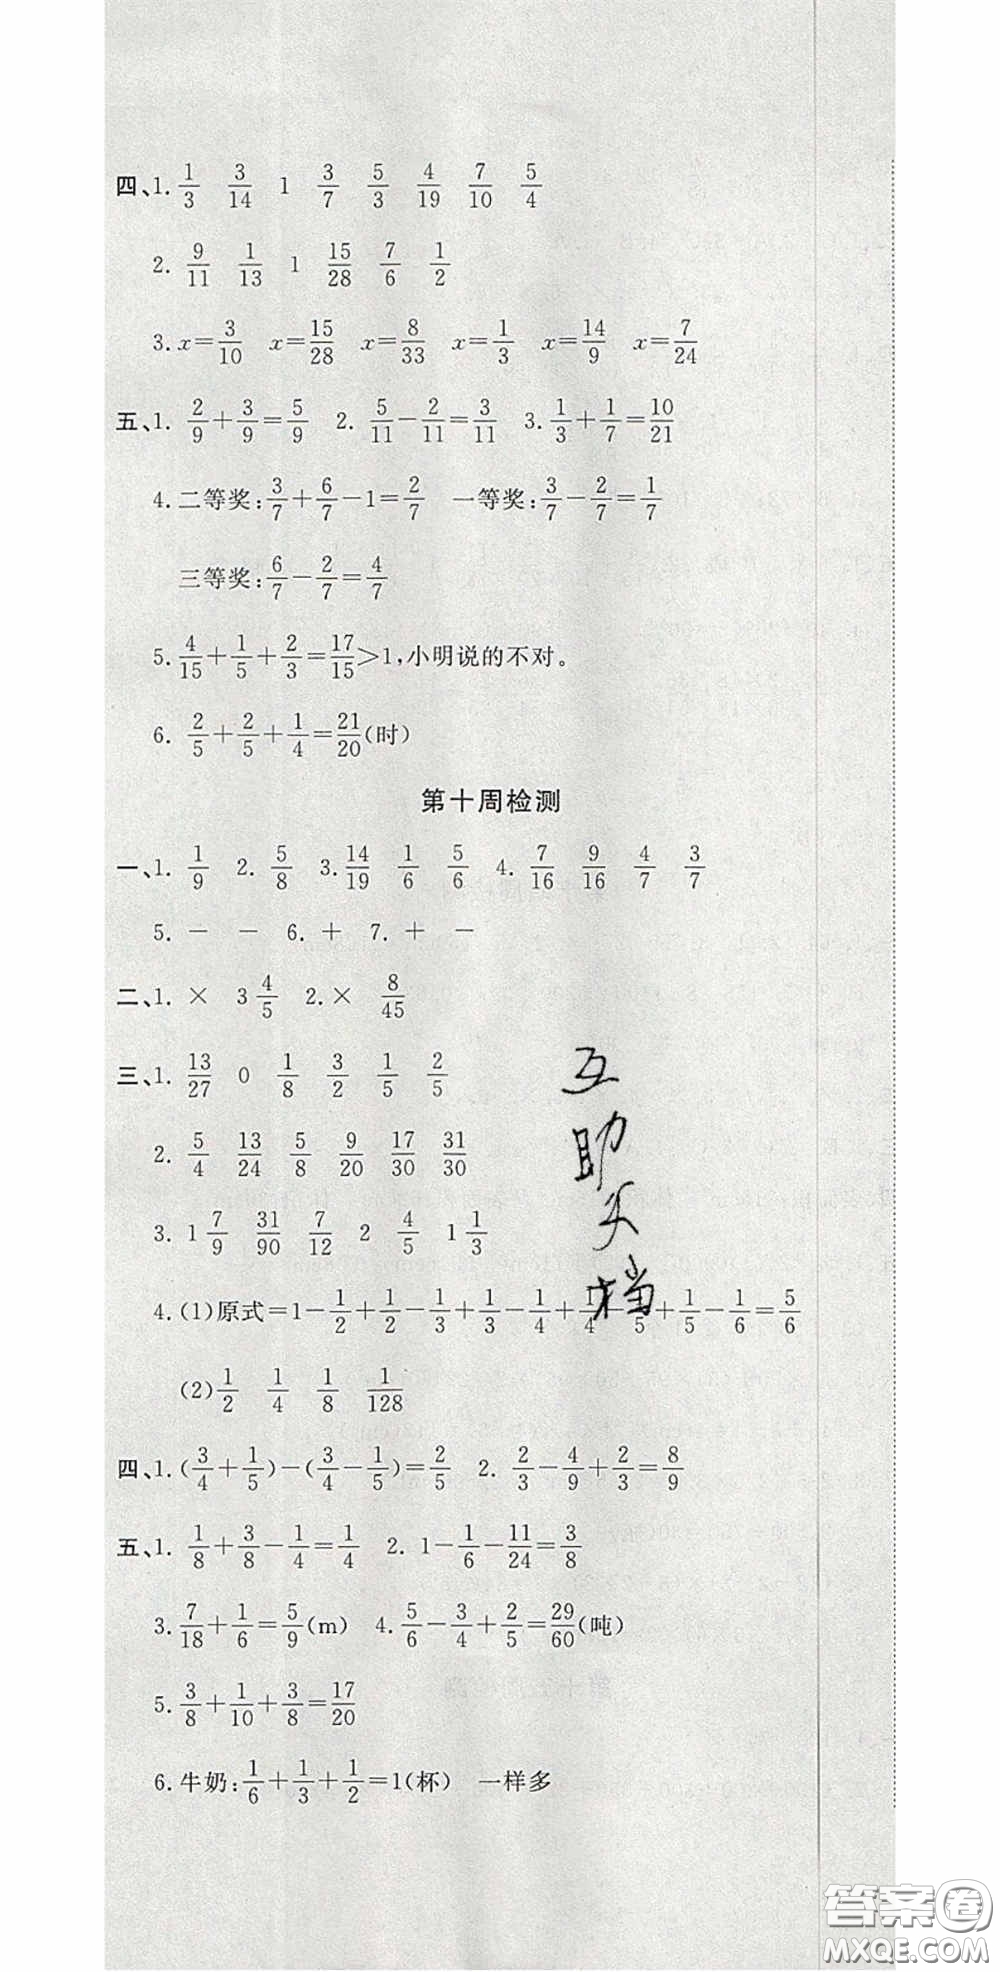 四、1. 1/3 3/14 1 3/7 5/3 4/19 7/10 5/4
2. 9/11 1/13 1 15/28 7/6 1/2
3. x=3/10 x=15/28 x=8/33 x=1/3 x=14/9 x=7/24
五、1. 2/9+3/9=5/9 2. 5/11-2/11=3/11 3. 1/3+1/7=10/21
4. 二等奖:3/7+6/7-1=2/7 一等奖:3/7-2/7=1/7
三等奖:6/7-2/7=4/7
5. 4/15+1/5+2/3=17/15>1,小明说的不对。
6. 2/5+2/5+1/4=21/20(时)
第十周检测
一、1. 1/9 2. 5/8 3. 14/19 1/6 5/6 4. 7/16 9/16 4/7 3/7
5. - - 6. + 7. + -
二、1. × 3 4/5 2. × 8/45
三、1. 13/27 0 1/8 3/2 1/5 2/5
2. 5/4 13/24 5/8 9/20 17/30 31/30
3. 1 7/9 31/90 7/12 2 4/5 1 1/3
4. (1)原式=1-1/2+1/2-1/3+1/3-1/4+1/4-1/5+1/5-1/6=5/6
(2)1/2 1/4 1/8 1/128
四、1. (3/4+1/5)-(3/4-1/5)=2/5 2. 2/3-4/9+2/3=8/9
五、1. 1/8+3/8-1/4=1/4 2. 1-1/6-11/24=3/8
3. 7/18+1/6=5/9(m) 4. 5/6-3/4+2/5=29/60(吨)
5. 3/8+1/10+3/8=17/20
6. 牛奶:1/6+1/3+1/2=1(杯) 一样多
互
助
文
档
答案圈
MXQE.COM